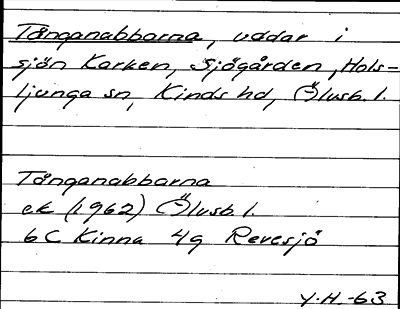 Tånganabbarna, uddar i
sjön Karken, Sjögården, Hols-
ljunga sn, Kinds hd, Älvsb. l.
Tånganabbarna
ek (1962) Älvsb. l.
6C Kinna 4g Revesjö
Y.H.-63